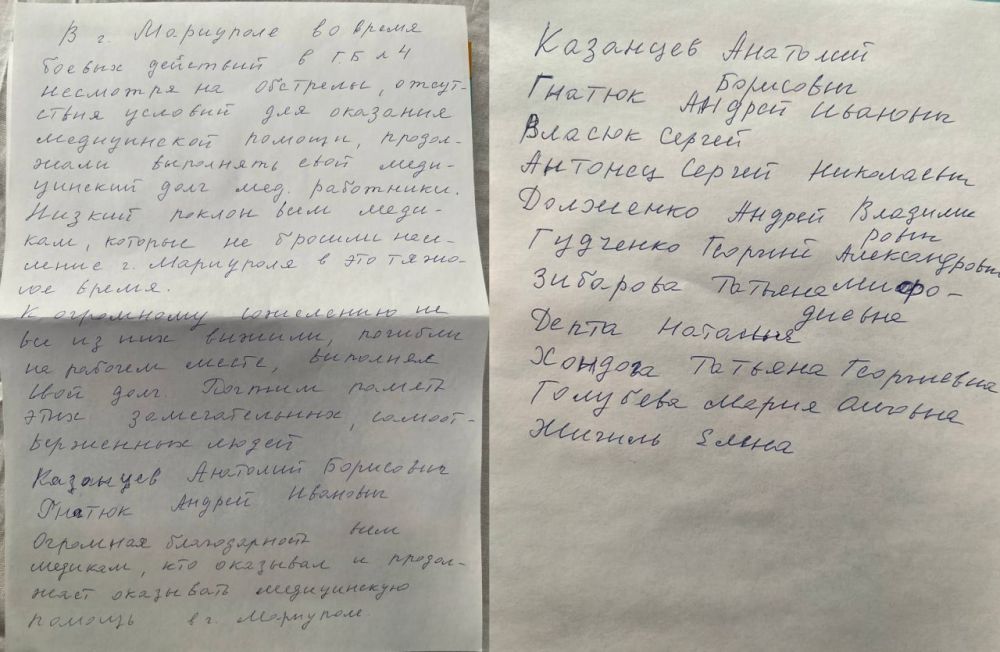 В г. Мариуполе во время
боевых действий в ГБ №4
несмотря на обстрелы, отсут-
ствия условий для оказания
медицинской помощи, продол-
жали выполнять свой меди-
цинский долг мед. работники.
Низкий поклон всем меди-
кам, которые не бросили насе-
ление г. Мариуполя в это тяжо-
лое время.
К огромному сожелению не
все из них выжили, погибли
на рабочем месте, выполняя
свой долг. Почтим память
этих замечательных, самоот-
верженных людей
Казанцев Анатолий Борисович
Гнатюк Андрей Иванович
Огромная благодарность всем
медикам, кто оказывал и продол-
жает оказывать медицинскую
помощь в г. Мариуполе.
Казанцев Анатолий
Борисович
Гнатюк Андрей Иванович
Власюк Сергей
Антонец Сергей Николаевич
Долженко Андрей Владими
рович
Гудченко Георгий Александрович
Зибарова Татьяна Мифо-
диевна
Депта Наталья
Хондога Татьяна Георгиевна
Голубева Мария
Жигиль Елена